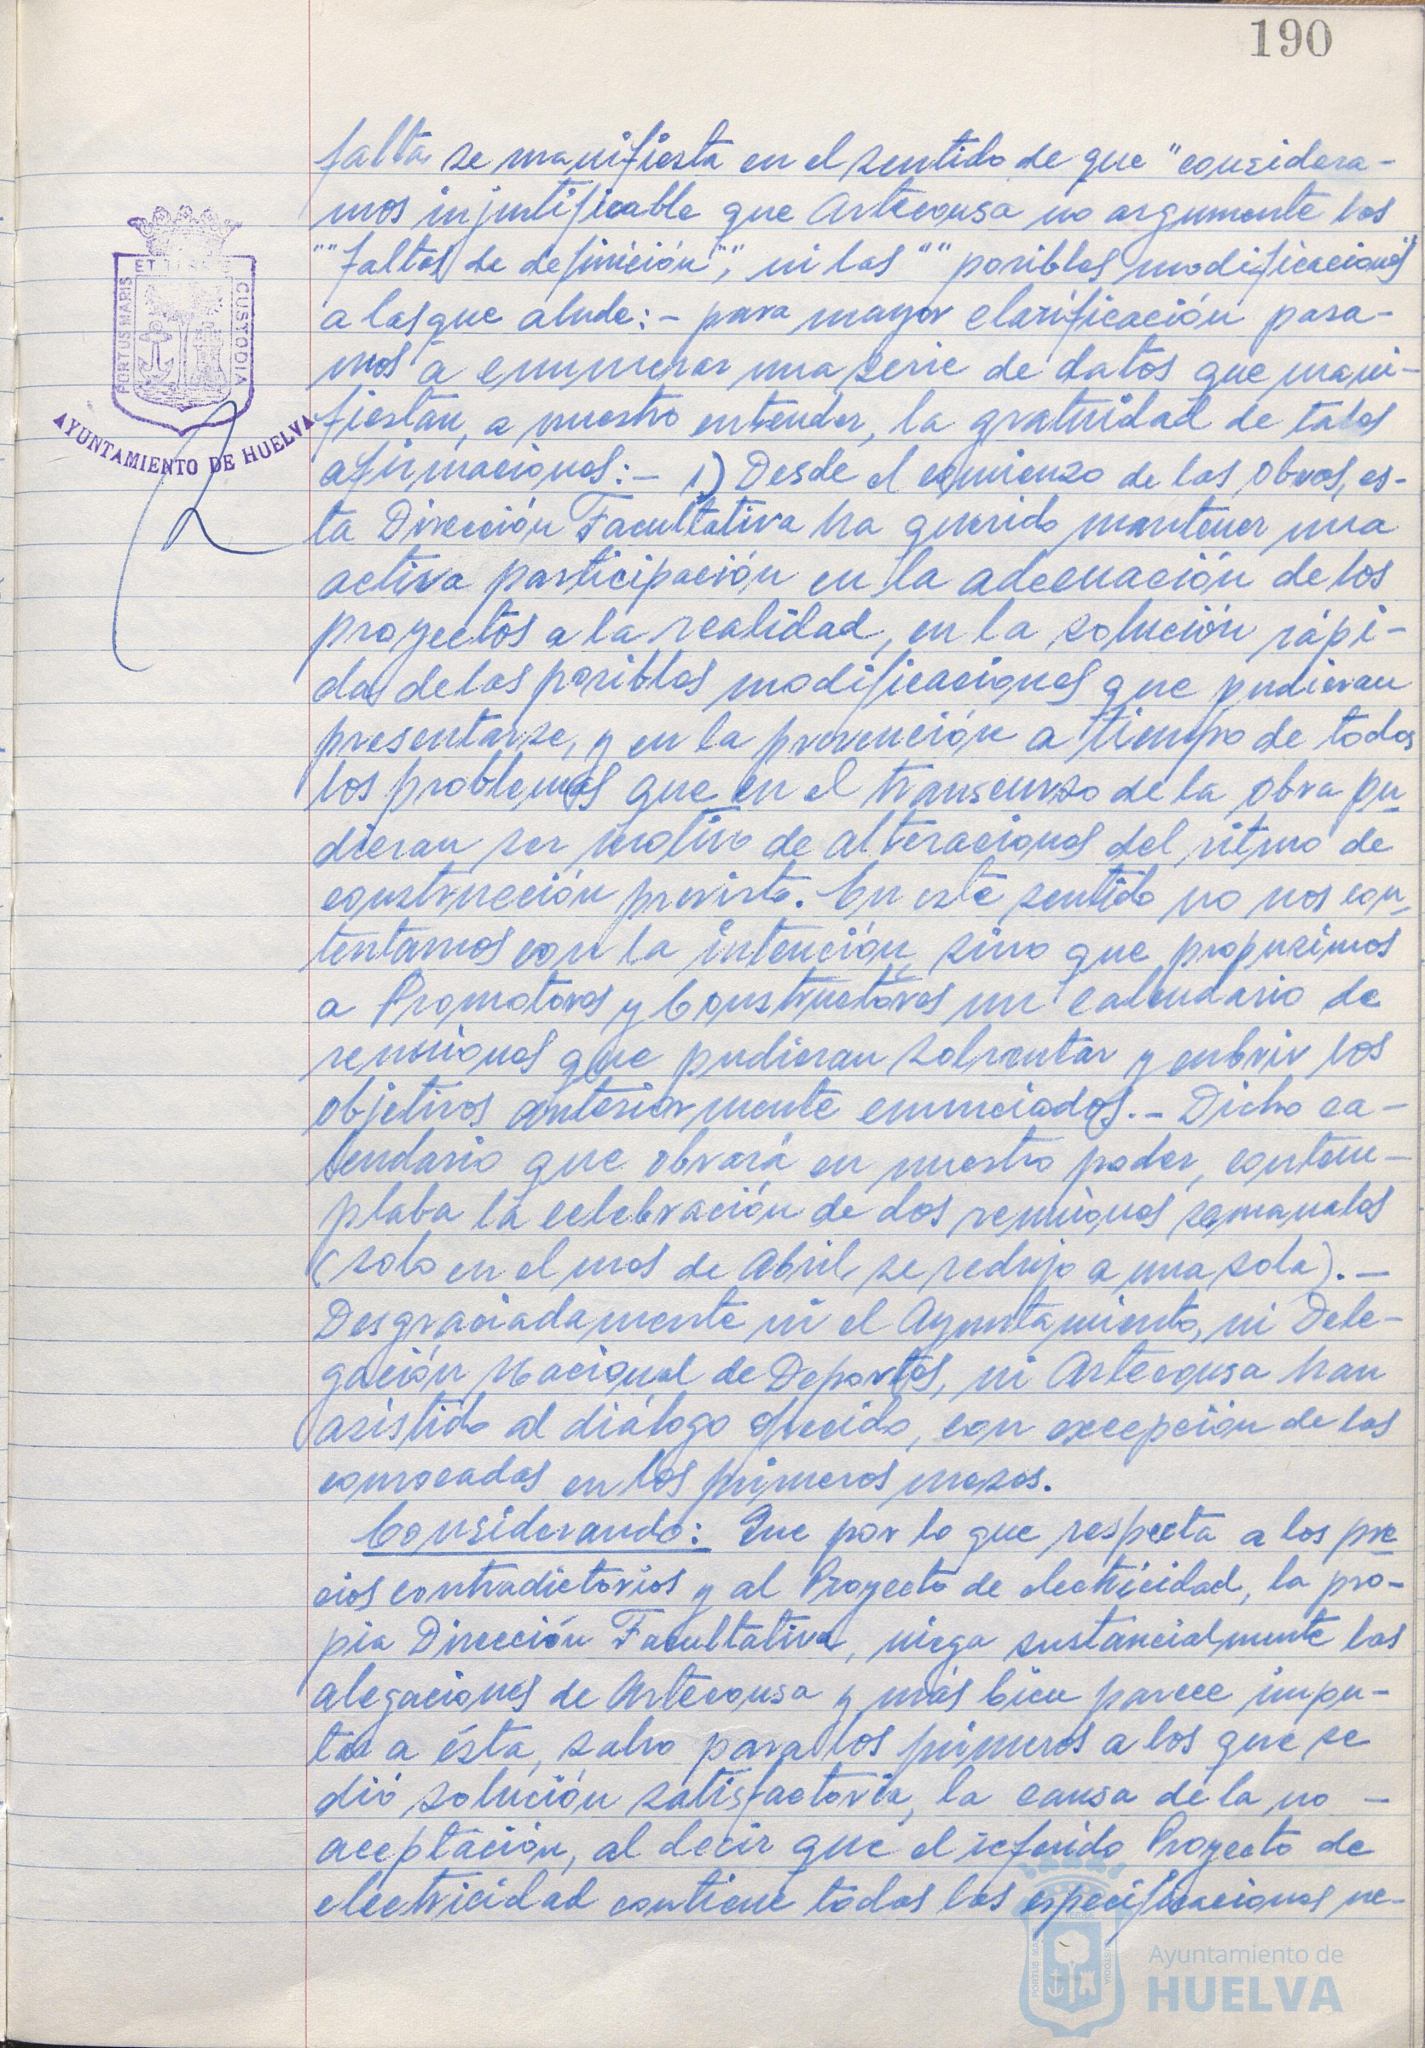 190
falta se manifiesta en el sentido de que "considera-
mos injustificable que Artecousa no argumente las
""faltas de definición"", ni las ""posibles modificaciones"
a las que alude: - para mayor clarificación pasa-
mos a enumerar una serie de datos que mani-
fiestan, a nuestro entender, la gratuidad de tales
afirmaciones: - 1) Desde el comienzo de las obras, es-
ta Dirección Facultativa ha querido mantener una
activa participación en la adecuación de los
proyectos a la realidad, en la solución rápi-
das de las posibles modificaciones que pudieran
presentarse, y en la prevención a tiempo de todos
los problemas que en el transcurso de la obra pu-
dieran ser motivo de alteraciones del ritmo de
construcción previsto. En este sentido no nos con-
tentamos con la intención, sino que propusimos
a Promotores y Constructores un calendario de
reuniones que pudieran solventar y cubrir los
objetivos anteriormente enunciados. - Dicho ca-
lendario que obrará en nuestro poder, contem-
plaba la celebración de dos reuniones semanales
(solo en el mes de Abril, se redujo a una sola). -
Desgraciadamente ni el Ayuntamiento, ni Dele-
gación Nacional de Deportes, ni Artecousa han
asistido al diálogo ofrecido, con excepción de las
convocadas en los primeros meses.
Considerando: Que por lo que respecta a los pre
cios contradictorios y al Proyecto de electricidad, la pro-
pia Dirección Facultativa, niega sustancialmente las
alegaciones de Artecousa y más bien parece impu-
tar a ésta, salvo para los primeros a los que se
dió solución satisfactoria, la causa de la no -
aceptación, al decir que el referido Proyecto de
electricidad contiene todas las especificaciones ne-
PORTUS MARIS ET TERRAE CUSTODIA
AYUNTAMIENTO DE HUELVA
Ayuntamiento de
HUELVA